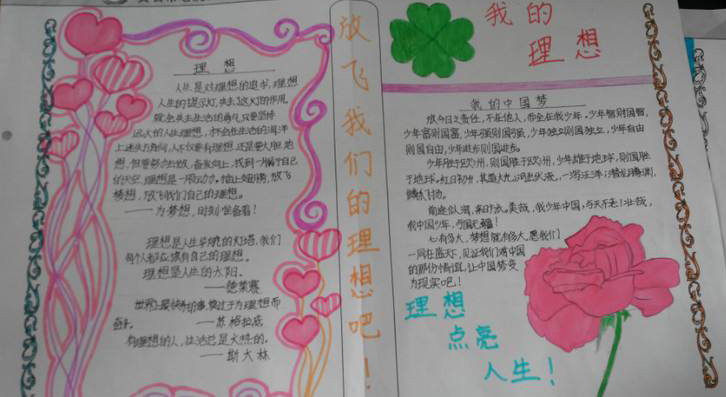 理想
人生是对理想的追求，理想
人生的指示灯，失去了这灯的作用，
就会失去生活的勇气，只要坚持
远大的人生理想，不会在生活的海洋
上迷失方向，人不仅要有理想，还是要大胆地
想，但要努力去做，奋发向上，找到一片属于自己
的天空。理想是一股动力。插上翅膀，放飞
梦想，放飞我们自己的理想。
——为梦想，时刻准备着！
理想是人生单的灯塔，我们
每个人都应拥有自己的理想。
理想是人生的太阳。
——德莱赛
世界上最快乐的事，莫过于为理想而
奋斗。——苏格拉底
有理想的人，生活总是火热的。
——斯大林
放飞我们的理想吧！
我的
理想
我的中国梦
故今日之责任，不在他人，而全在我少年，少年智则国智，
少年富则国富，少年强则国强，少年独立则国独立，少年自由
则国自由，少年进步则国进步。
少年胜于欧州，则国胜于欧州，少年雄于地球，则国雄
于地球。红日初升，其道大光；河出伏流，一泻汪洋；潜龙腾渊，
鳞爪飞扬。
前途似海，来日方长。美哉，我少年中国，与天不老！壮哉，
我中国少年，与国无疆！
心有多大，梦想就有多大。愿我们
一同在蓝天下，见证我们对中国
的那份情谊，让中国梦变
为现实吧！
理想
点亮
人生！